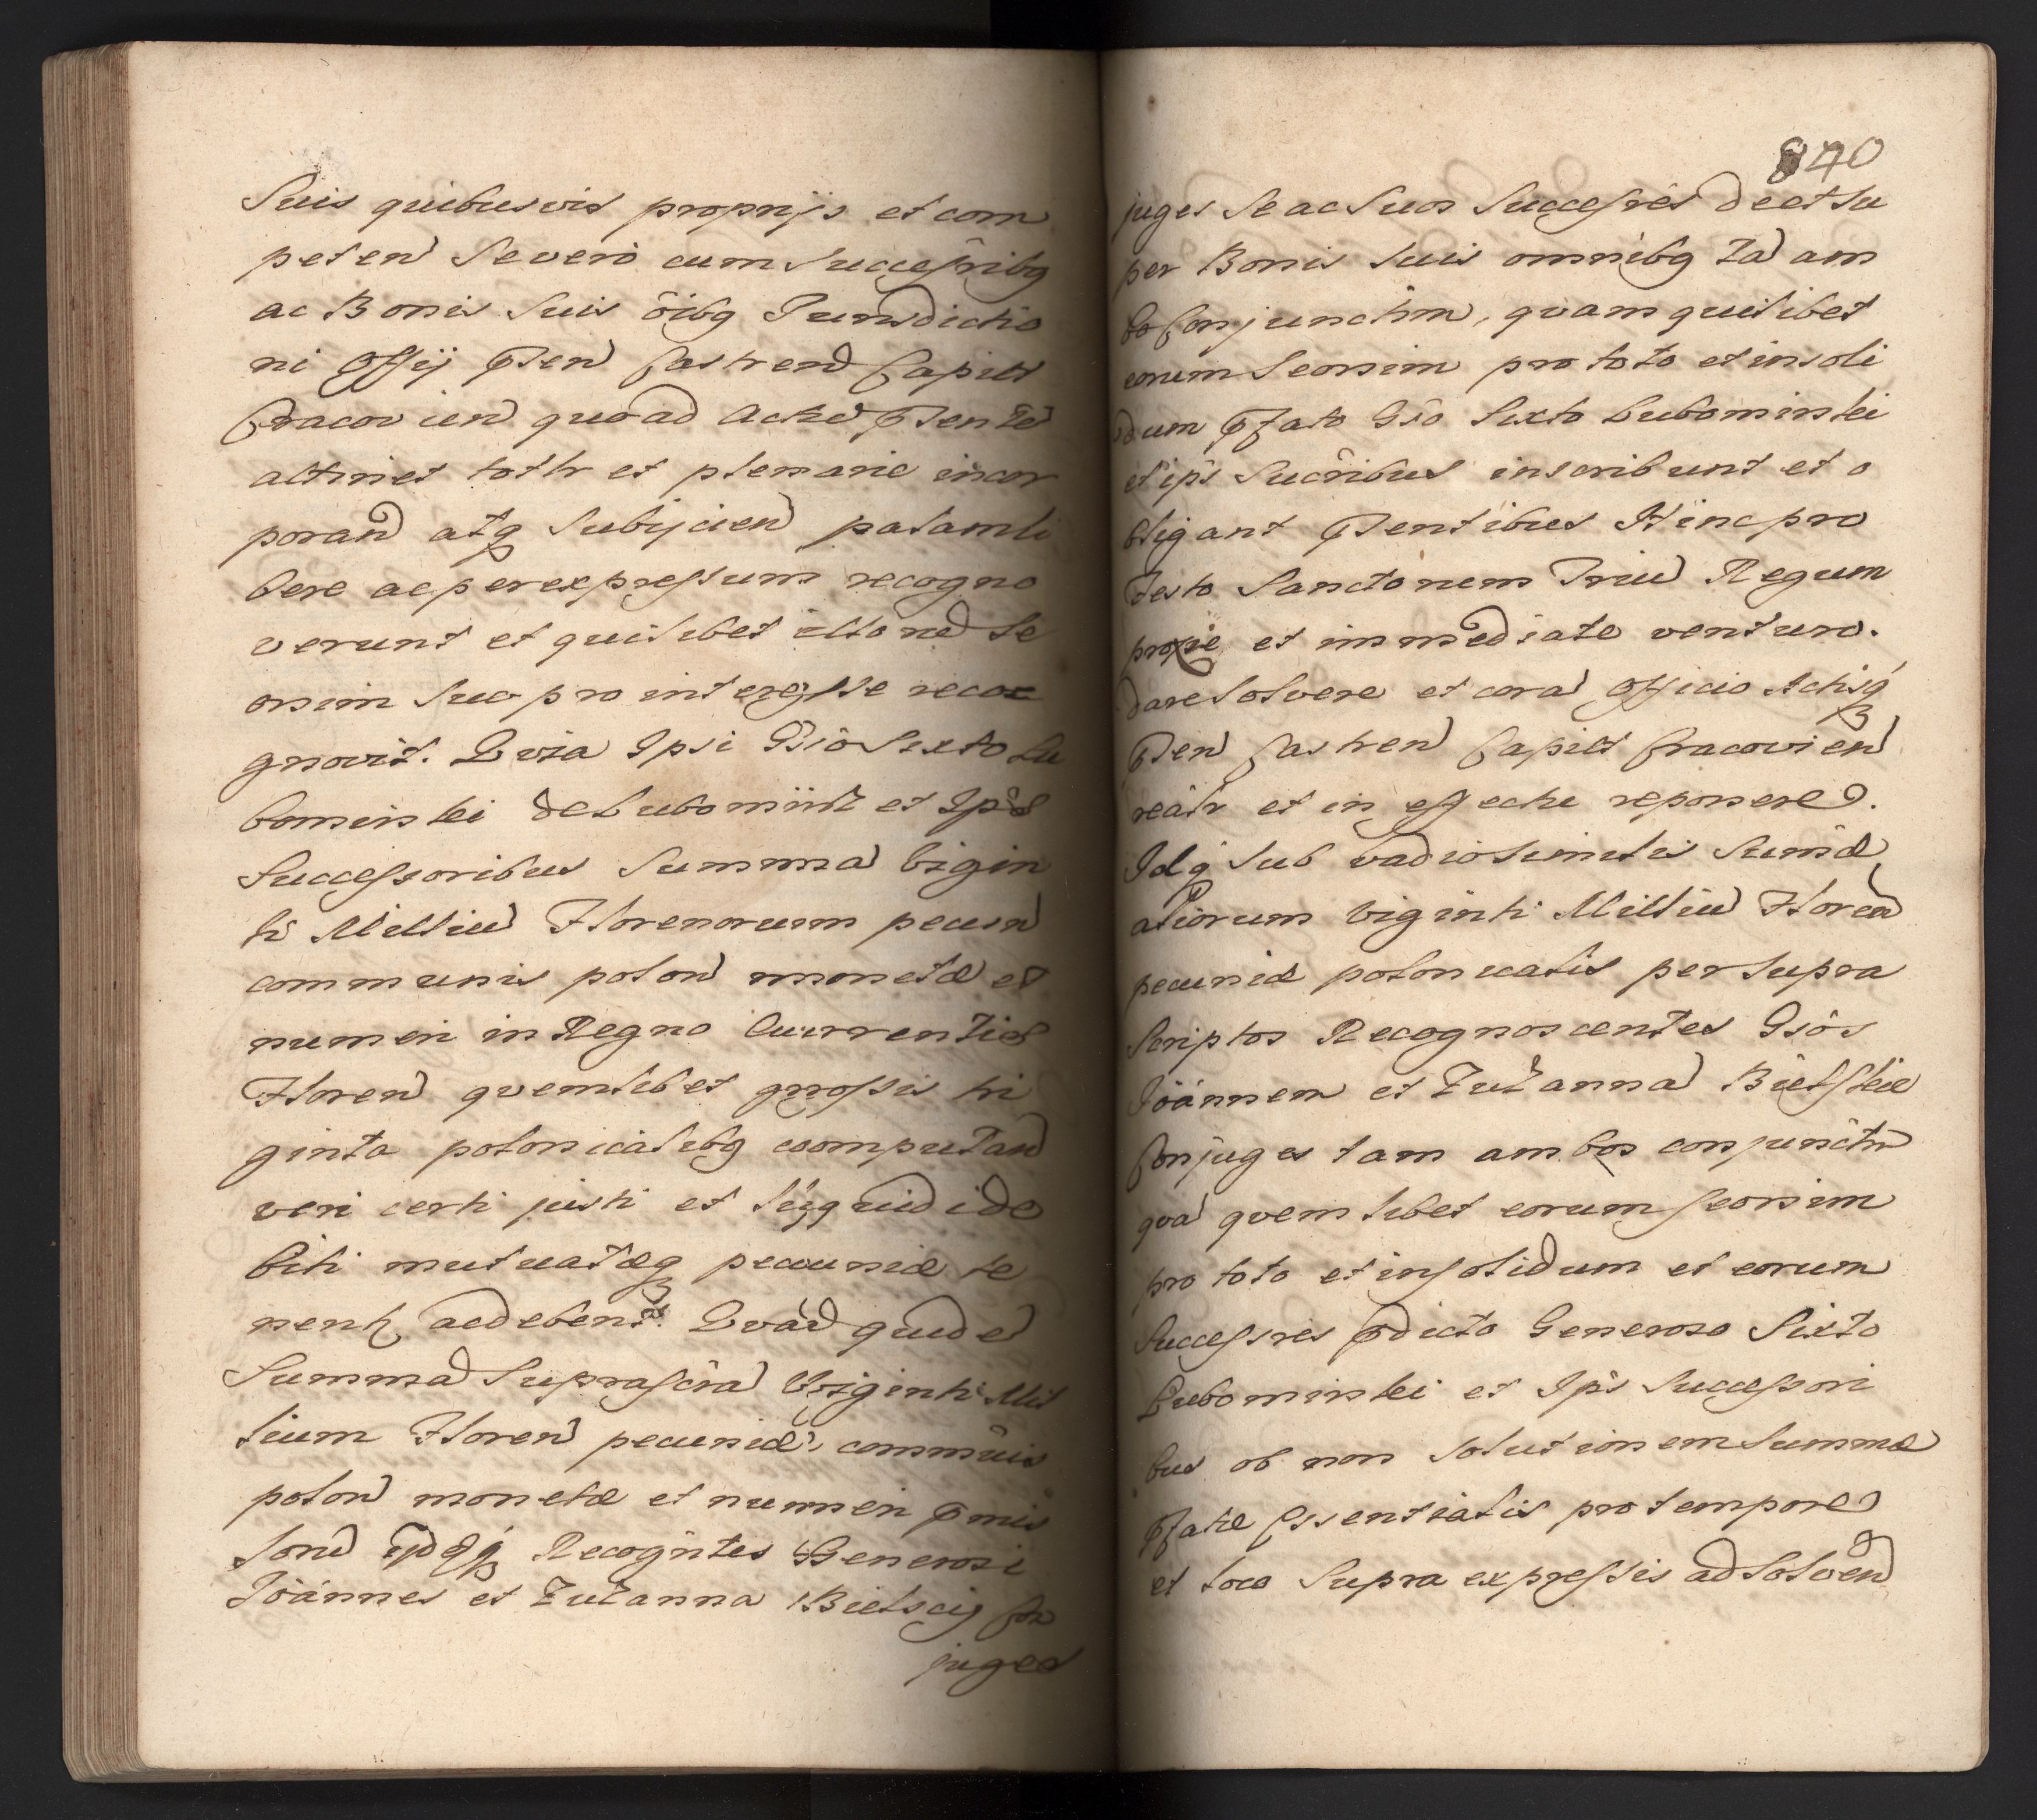 Suis quibusvis proprijs et com
peten Severo cum Successribq
ac Bonis Suis oibq Jurisdictio
ni Offij Psen Castren Capitt
Cracovien quoad Actu Psente
attinet totlr et plenarie incor
poran atq Subijcien palam li
bere ac per expressum recogno
verunt et quilibet illorue se
orsim suo pro interesse reco
gnovit. Qvia Ipsi Gsio Sexto Lu
bominski de Lubomint et Ips
Successoribus Summa Vigin
ti Milliu Florenorum pecun
communis polon monetæ et
numeri in Regno Currentis
Floren qvemlibet grossis tri
ginta polonicalibq computan
veri certi justi et liqquidi de
biti mutuatæq pecuniæ te
nentz ac debent. Qvad quide
Summa Suprascra Viginti Mil
lium Floren pecuniæ commûis
polon monetæ et numeri Pmis
sorû Recogñtes Generosi
Joánnes et Zuzanna Bielscij Con
juges
840
juges Se ac Suos Successrês de et Su
per Bonis Suis omnibq ta am
bo Conjunctim, qvam quilibet
eorum Seorsim pro toto et in soli
dum Pfato Gsô Sixto Lubominski
et ips Sucribus inscribunt et o
bligant Psentibus Hinc pro
Festo Sanctorem Triu Regum
proxie et immediate venturo.
dare Solvere et cora Officio Actisq
Psen Castren Capitt Cracovien
reâlr et in effectu reponere.
Idq Sub vadio Similis Sumæ
aliorum Viginti Milliu Floren
pecuniæ polonicalis per Supra
Scriptos Recognoscentes Gsôs
Jôánnem et Zuzanna Bielskie
Conjuges tam ambos conjunctim
qva qvemlibet eorum seorsim
pro toto et in solidum et eorum
Successres Pdicto Generoso Sixto
Lubominski et Ips Successori
bus ob non Solutionem Summæ
Pfatæ Essentialis pro tempore
et loco Supra expressis ad Solven